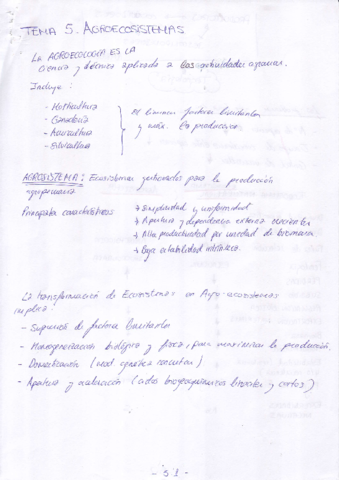 TEMA 5. AGROECOSISTEMAS
LA AGROECOLOGIA ES LA
Ciencia y técnica aplicada a las actividades agrarias.
Incluye:
- Horticultura
- Ganadería
- Avicultura
- Silvicultura
Eliminan factores limitantes
y max. la producción
AGROSISTEMA: Ecosistemas gestionados para la producción
agropecuaria
Principales características
→ Simplicidad y uniformidad
→ Apertura y dependencia externa crecientes
→ Alta productividad por unidad de biomasa
→ Baja estabilidad intrínseca.
La transformación de Ecosistemas en Agro-ecosistemas
implica:
- Supresión de factores limitantes
- Homogeneización biológica y física, para maximizar la producción.
- Domesticación (mod. genética consciente)
- Apertura y aceleración (ciclos biogeoquímicos lineales y cortos)
- 51 -